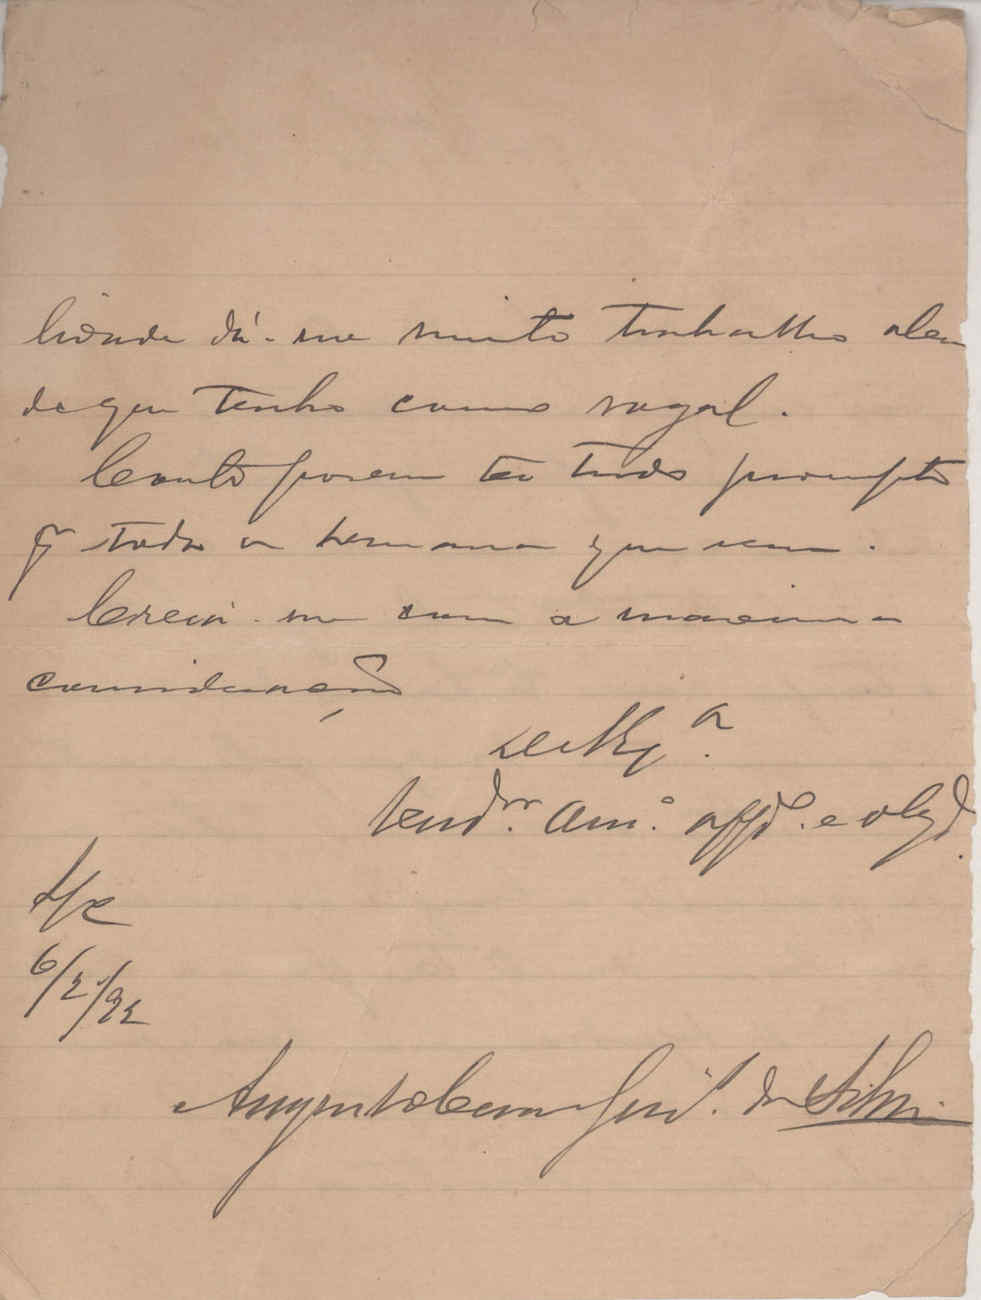 lidade dá-me muito trabalho alem
do que tenho como vogal.
Conto porem ter tudo prompto
pª toda a semana que vem.
Creia-me com a maxima
consideração
De V. Exª.
Vendºʳ. Amº. affº. e obgdº.
S/c
6/2/92
Augusto Cesar da Silva